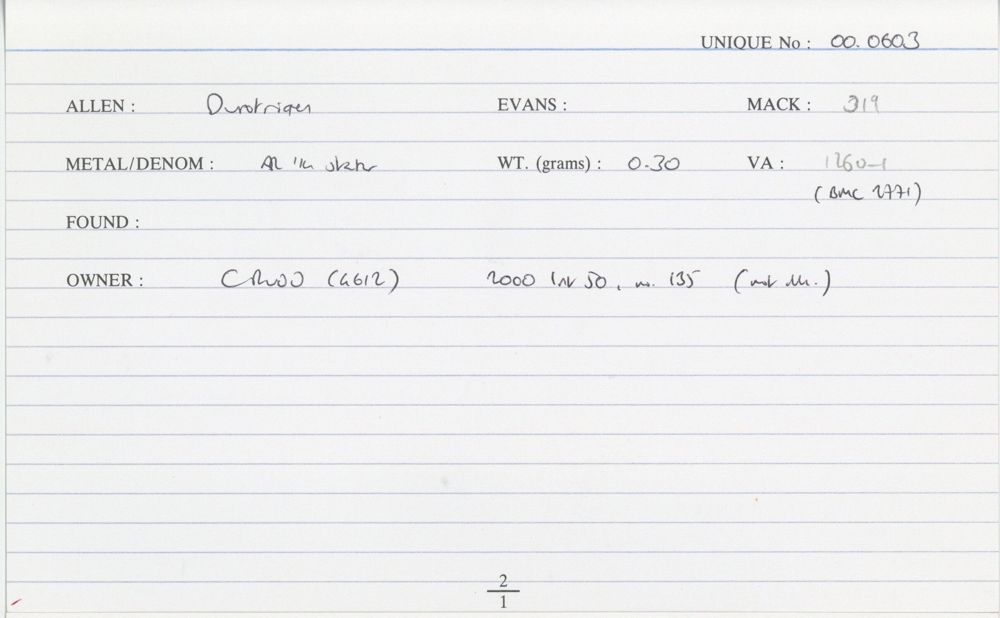 UNIQUE No : 00.0603
ALLEN : Durotriges EVANS : MACK : 319
METAL/DENOM : AR 1/4 stater WT. (grams) : 0.30 VA : 1260-1
(BMC 2771)
FOUND :
OWNER : CRUSO (G612) 2000 Inv 50, no. 135 (not ill.)
2
1